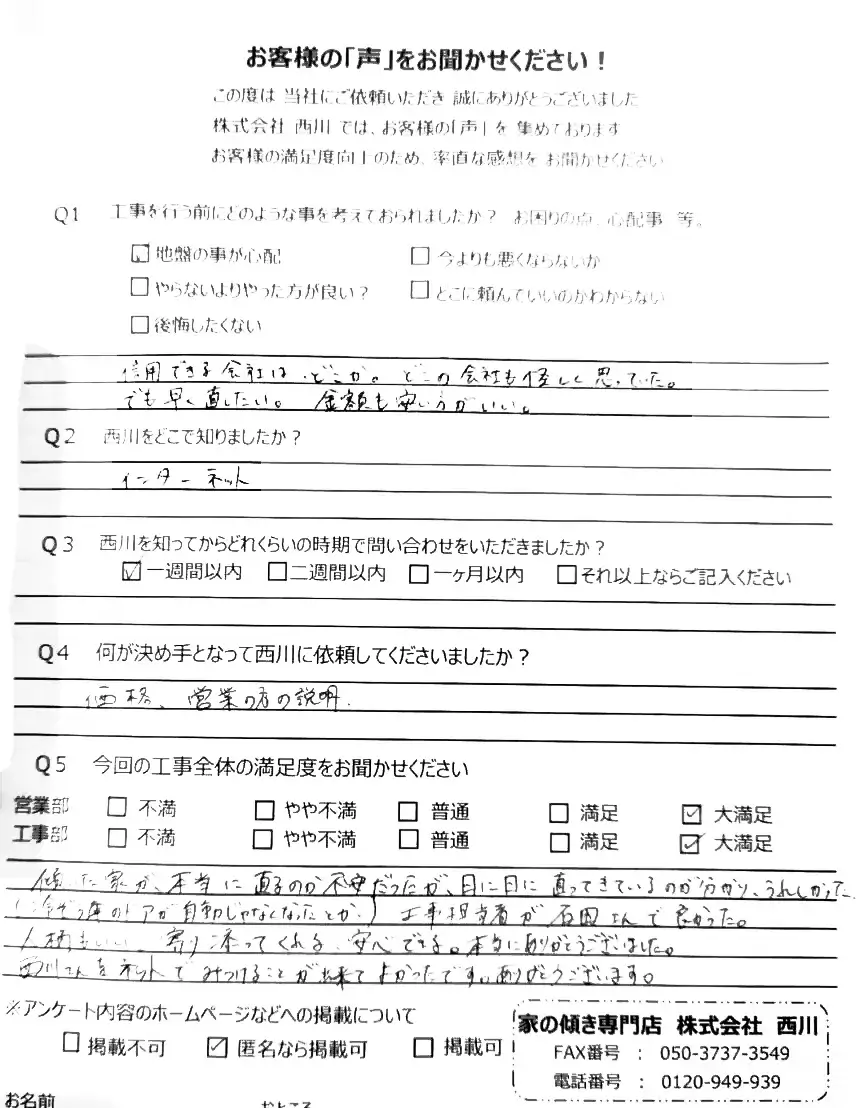 お客様の「声」をお聞かせください！
この度は 当社にご依頼いただき 誠にありがとうございました
株式会社 西川 では、お客様の「声」を 集めております
お客様の満足度向上のため、率直な感想を お聞かせください
Q1 工事を行う前にどのような事を考えておられましたか？ お困りの点、心配事 等。
☑地盤の事が心配 □今よりも悪くならないか
□やらないよりやった方が良い？ □どこに頼んでいいのかわからない
□後悔したくない
信用できる会社は、どこか。どこの会社も怪しく思っていた。
でも早く直したい。金額も安い方がいい。
Q2 西川をどこで知りましたか？
インターネット
Q3 西川を知ってからどれくらいの時期で問い合わせをいただきましたか？
☑一週間以内 □二週間以内 □一ヶ月以内 □それ以上ならご記入ください
Q4 何が決め手となって西川に依頼してくださいましたか？
価格、営業の方の説明.
Q5 今回の工事全体の満足度をお聞かせください
営業部 □ 不満 □ やや不満 □ 普通 □ 満足 ☑ 大満足
工事部 □ 不満 □ やや不満 □ 普通 □ 満足 ☑ 大満足
傾いた家が、本当に直るのか不安だったが、日に日に直ってきているのが分かり、うれしかった
ドアが自動じゃなくなったとか) 工事担当者が石田さんで良かった。
人柄もいい、寄り添ってくれる、安心できる。本当にありがとうございました。
西川さんをネットでみつけることが出来てよかったです。ありがとうございます。
※アンケート内容のホームページなどへの掲載について
□ 掲載不可 ☑ 匿名なら掲載可 □ 掲載可
家の傾き専門店 株式会社 西川
FAX番号 ： 050-3737-3549
電話番号 ： 0120-949-939
お名前 おところ